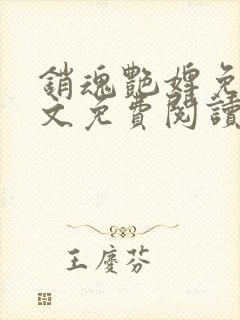 銷魂艷婢免
文免費閱讀
王慶芬